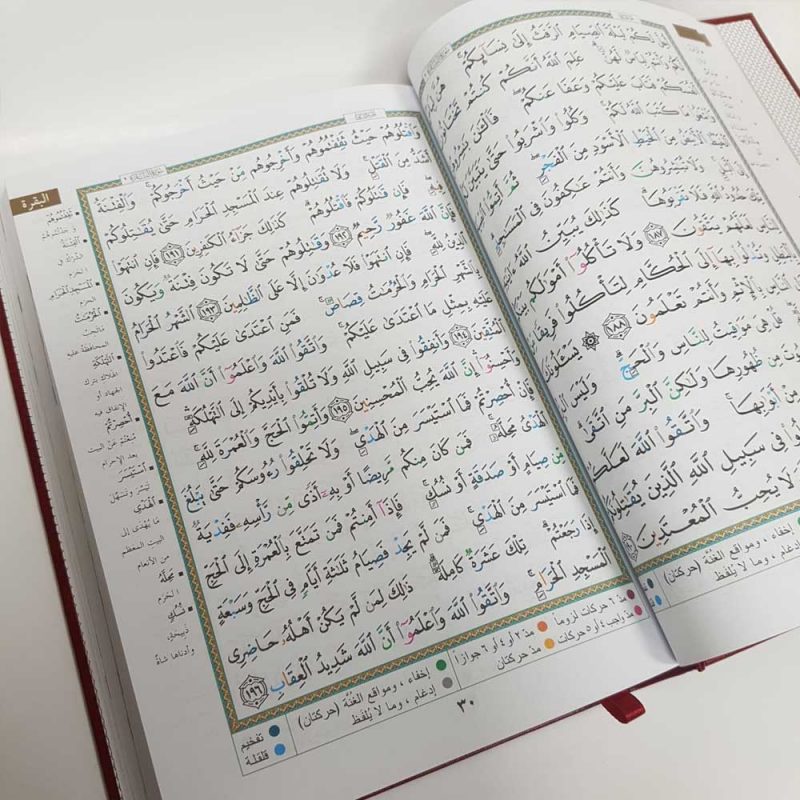 لَكُمْ لَيْلَةَ ٱلصِّيَامِ ٱلرَّفَثُ إِلَىٰ نِسَآئِكُمْ هُنَّ
لَّكُمْ وَأَنتُمْ لِبَاسٌ لَّهُنَّ عَلِمَ ٱللَّهُ أَنَّكُمْ كُنتُمْ
فَتَابَ عَلَيْكُمْ وَعَفَا عَنكُمْ فَٱلْـَٰٔنَ بَـٰشِرُوهُنَّ
مَا كَتَبَ ٱللَّهُ لَكُمْ وَكُلُوا۟ وَٱشْرَبُوا۟ حَتَّىٰ يَتَبَيَّنَ
ٱلْأَبْيَضُ مِنَ ٱلْخَيْطِ ٱلْأَسْوَدِ مِنَ ٱلْفَجْرِ ثُمَّ
إِلَى ٱلَّيْلِ وَلَا تُبَـٰشِرُوهُنَّ وَأَنتُمْ عَـٰكِفُونَ فِى ٱلْمَسَـٰجِدِ
حُدُودُ ٱللَّهِ فَلَا تَقْرَبُوهَا كَذَٰلِكَ يُبَيِّنُ ٱللَّهُ
لِلنَّاسِ لَعَلَّهُمْ يَتَّقُونَ ١٨٧ وَلَا تَأْكُلُوٓا۟ أَمْوَٰلَكُم
بِٱلْبَـٰطِلِ وَتُدْلُوا۟ بِهَآ إِلَى ٱلْحُكَّامِ لِتَأْكُلُوا۟ فَرِيقًا
بِٱلْإِثْمِ وَأَنتُمْ تَعْلَمُونَ ١٨٨ يَسْـَٔلُونَكَ
قُلْ هِىَ مَوَٰقِيتُ لِلنَّاسِ وَٱلْحَجِّ وَلَيْسَ
مِن ظُهُورِهَا وَلَـٰكِنَّ ٱلْبِرَّ مَنِ ٱتَّقَىٰ
مِنْ أَبْوَٰبِهَا وَٱتَّقُوا۟ ٱللَّهَ لَعَلَّكُمْ
فِى سَبِيلِ ٱللَّهِ ٱلَّذِينَ يُقَـٰتِلُونَكُمْ
لَا يُحِبُّ ٱلْمُعْتَدِينَ
مدّ ٦ حركات لزوماً
مدّ واجب ٤ أو ٥ حركات
مدّ ٢ أو ٤ أو ٦ جوازاً
مدّ حركتان
إخفاء ، ومواقع الغُنّة (حركتان)
إدغام ، وما لا يُلفَظ
وَٱقْتُلُوهُمْ حَيْثُ ثَقِفْتُمُوهُمْ وَأَخْرِجُوهُم مِّنْ حَيْثُ أَخْرَجُوكُمْ وَٱلْفِتْنَةُ
أَشَدُّ مِنَ ٱلْقَتْلِ وَلَا تُقَـٰتِلُوهُمْ عِندَ ٱلْمَسْجِدِ ٱلْحَرَامِ حَتَّىٰ يُقَـٰتِلُوكُمْ
فِيهِ فَإِن قَـٰتَلُوكُمْ فَٱقْتُلُوهُمْ كَذَٰلِكَ جَزَآءُ ٱلْكَـٰفِرِينَ ١٩١ فَإِنِ ٱنتَهَوْا۟
فَإِنَّ ٱللَّهَ غَفُورٌ رَّحِيمٌ ١٩٢ وَقَـٰتِلُوهُمْ حَتَّىٰ لَا تَكُونَ فِتْنَةٌ وَيَكُونَ
ٱلدِّينُ لِلَّهِ فَإِنِ ٱنتَهَوْا۟ فَلَا عُدْوَٰنَ إِلَّا عَلَى ٱلظَّـٰلِمِينَ ١٩٣ ٱلشَّهْرُ ٱلْحَرَامُ
بِٱلشَّهْرِ ٱلْحَرَامِ وَٱلْحُرُمَـٰتُ قِصَاصٌ فَمَنِ ٱعْتَدَىٰ عَلَيْكُمْ فَٱعْتَدُوا۟
عَلَيْهِ بِمِثْلِ مَا ٱعْتَدَىٰ عَلَيْكُمْ وَٱتَّقُوا۟ ٱللَّهَ وَٱعْلَمُوٓا۟ أَنَّ ٱللَّهَ مَعَ
ٱلْمُتَّقِينَ ١٩٤ وَأَنفِقُوا۟ فِى سَبِيلِ ٱللَّهِ وَلَا تُلْقُوا۟ بِأَيْدِيكُمْ إِلَى ٱلتَّهْلُكَةِ
وَأَحْسِنُوٓا۟ إِنَّ ٱللَّهَ يُحِبُّ ٱلْمُحْسِنِينَ ١٩٥ وَأَتِمُّوا۟ ٱلْحَجَّ وَٱلْعُمْرَةَ لِلَّهِ
فَإِنْ أُحْصِرْتُمْ فَمَا ٱسْتَيْسَرَ مِنَ ٱلْهَدْىِ وَلَا تَحْلِقُوا۟ رُءُوسَكُمْ حَتَّىٰ يَبْلُغَ
ٱلْهَدْىُ مَحِلَّهُۥ فَمَن كَانَ مِنكُم مَّرِيضًا أَوْ بِهِۦٓ أَذًى مِّن رَّأْسِهِۦ فَفِدْيَةٌ
مِّن صِيَامٍ أَوْ صَدَقَةٍ أَوْ نُسُكٍ فَإِذَآ أَمِنتُمْ فَمَن تَمَتَّعَ بِٱلْعُمْرَةِ إِلَى ٱلْحَجِّ
فَمَا ٱسْتَيْسَرَ مِنَ ٱلْهَدْىِ فَمَن لَّمْ يَجِدْ فَصِيَامُ ثَلَـٰثَةِ أَيَّامٍ فِى ٱلْحَجِّ وَسَبْعَةٍ
إِذَا رَجَعْتُمْ تِلْكَ عَشَرَةٌ كَامِلَةٌ ذَٰلِكَ لِمَن لَّمْ يَكُنْ أَهْلُهُۥ حَاضِرِى
ٱلْمَسْجِدِ ٱلْحَرَامِ وَٱتَّقُوا۟ ٱللَّهَ وَٱعْلَمُوٓا۟ أَنَّ ٱللَّهَ شَدِيدُ ٱلْعِقَابِ ١٩٦
البقرة
ثَقِفْتُمُوهُمْ
الْفِتْنَةُ
الشرك في
الحرم
الْمَسْجِدِ الْحَرَامِ
الحرم
الْحُرُمَاتُ
ما تجب
المحافظة عليه
التَّهْلُكَةِ
الهلاك بترك
الجهاد أو
الإنفاق فيه
أُحْصِرْتُمْ
مُنِعتم عن البيت
بعد الإحرام
اسْتَيْسَرَ
تيسّر وتسهّل
الْهَدْيِ
ما يُهدَى إلى
البيت المعظم
من الأنعام
مَحِلَّهُ
الحَرَم
نُسُكٍ
ذبيحة
وأدناها شاة
إخفاء ، ومواقع الغُنّة (حركتان)
إدغام ، وما لا يُلفَظ
تفخيم
قلقلة
٣٠